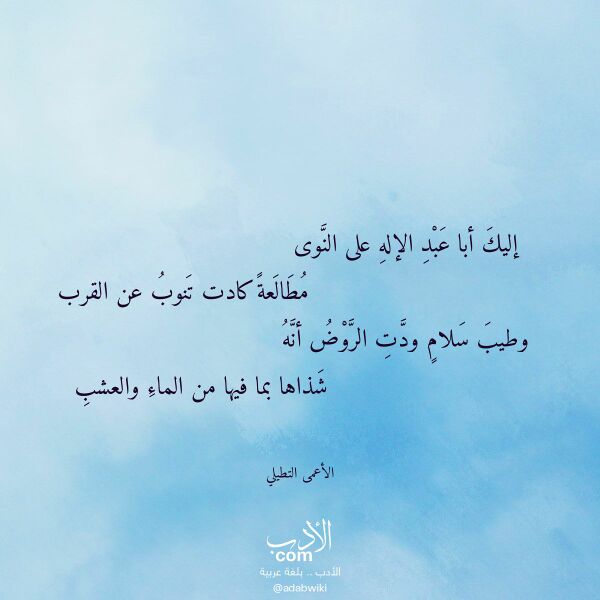 إليكَ أبا عَبْدِ الإلهِ على النَّوى
مُطَالَعةً كادت تَنوبُ عن القرب
وطيبَ سَلامٍ ودَّتِ الرَّوْضُ أنَّهُ
شَذاها بما فيها من الماءِ والعشبِ
الأعمى التطيلي
الأدب
com
الأدب .. بلغة عربية
@adabwiki